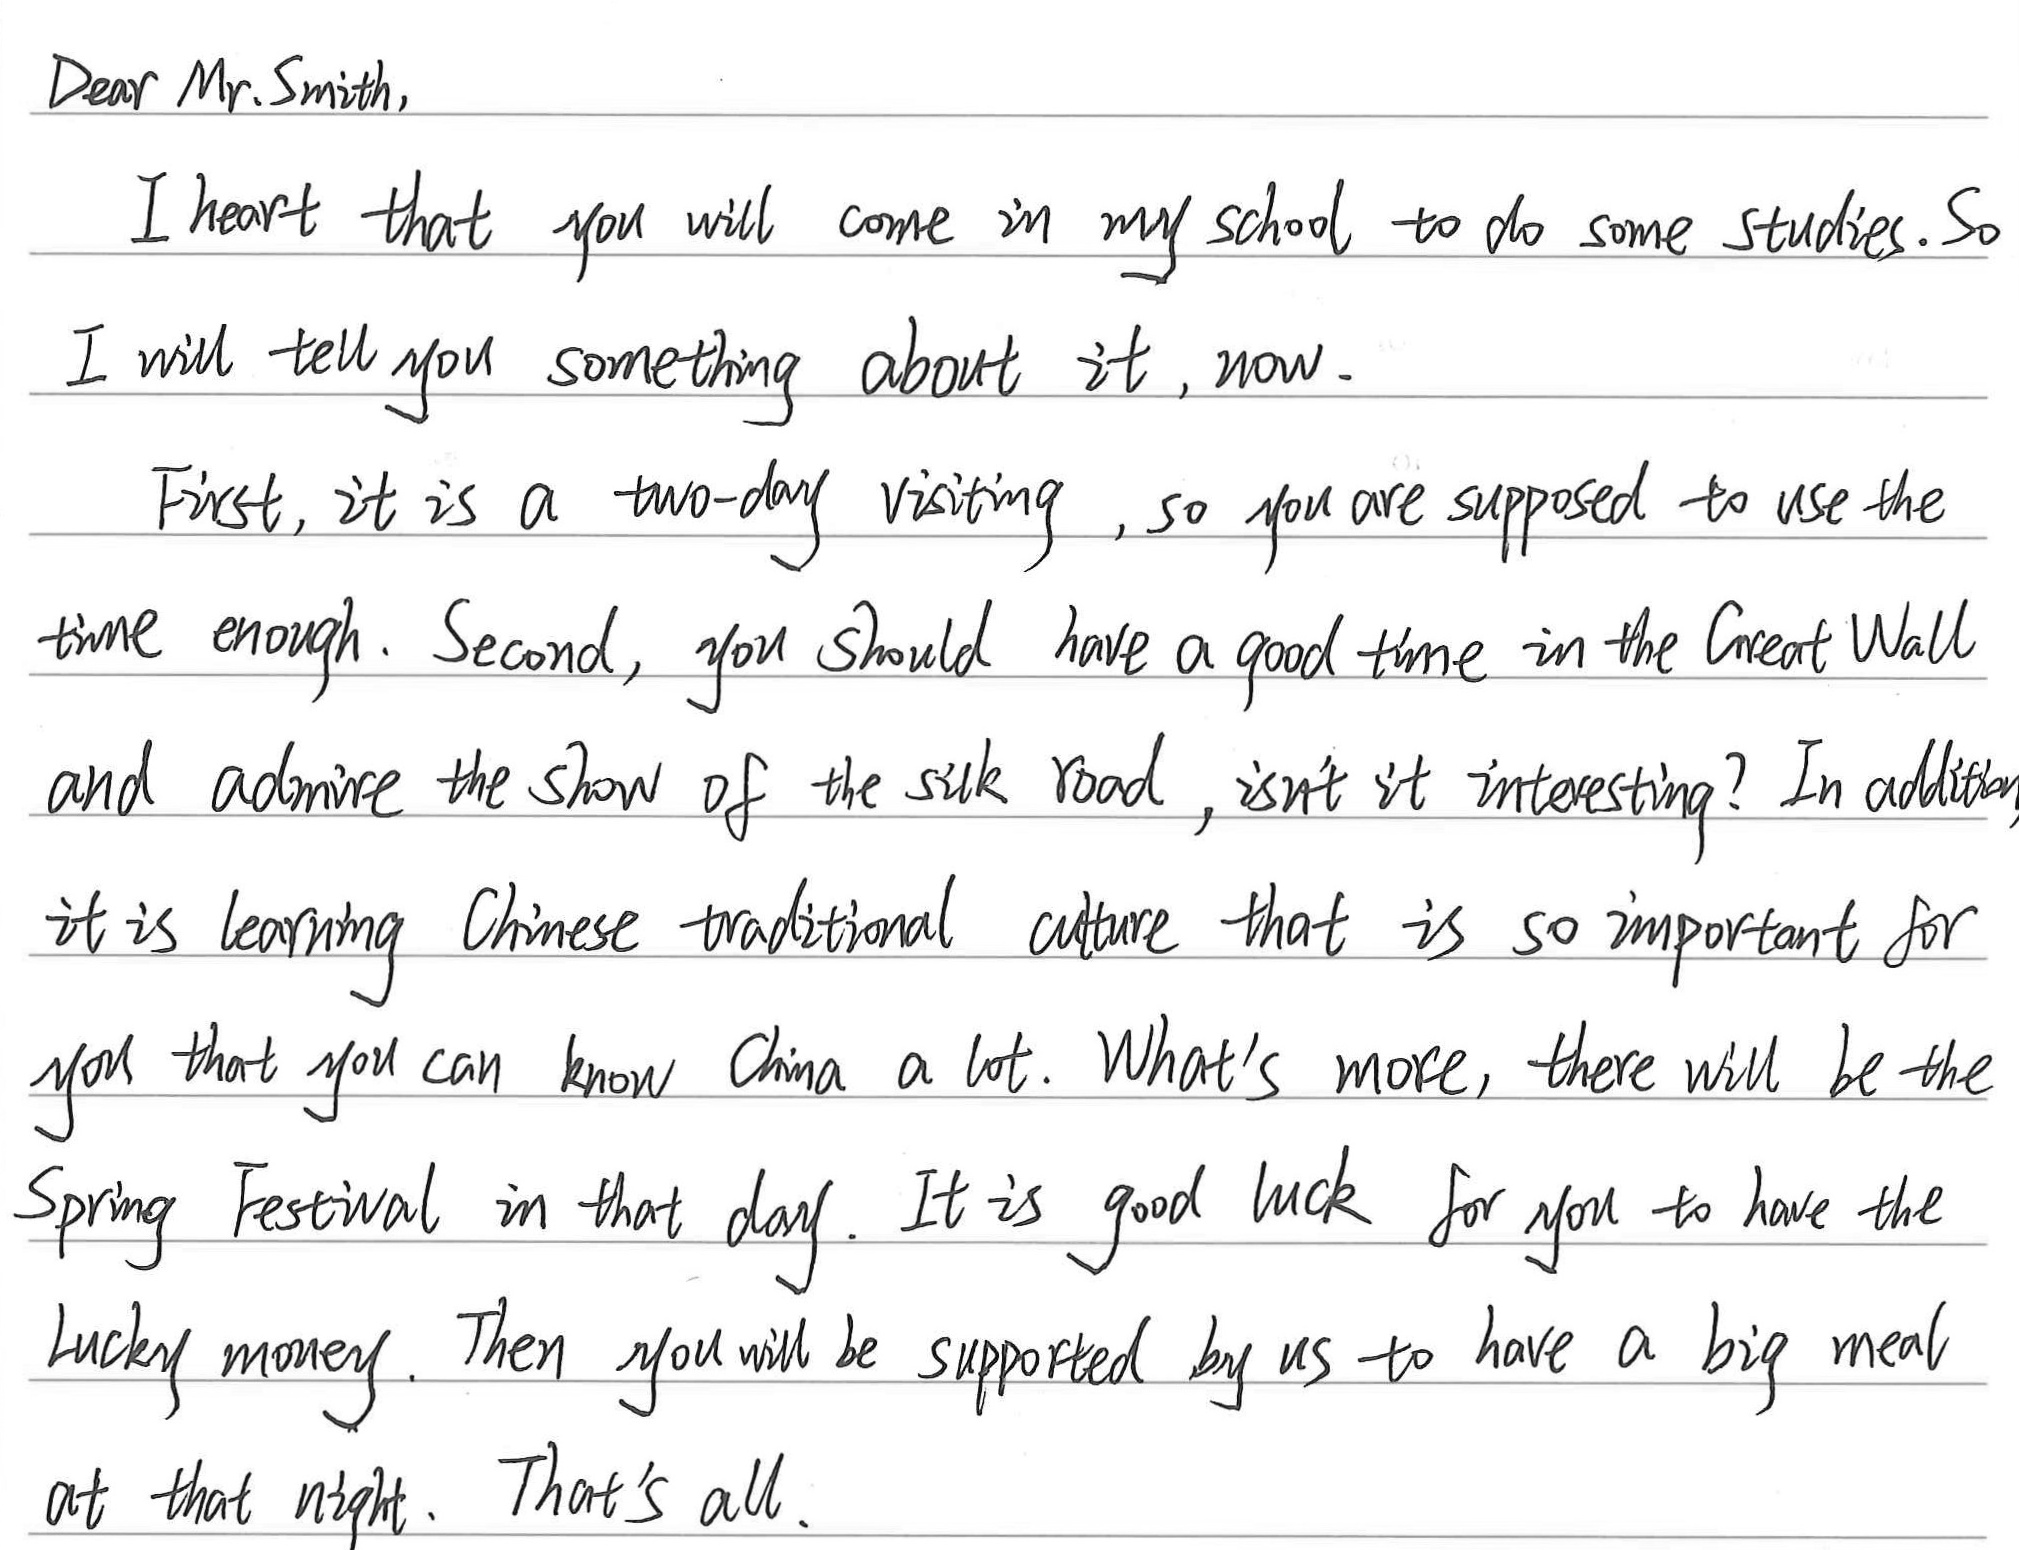 Dear Mr. Smith,
I heart that you will come in my school to do some studies. So
I will tell you something about it, now.
First, it is a two-day visiting, so you are supposed to use the
time enough. Second, you should have a good time in the Great Wall
and admire the show of the silk road, isn't it interesting? In addition,
it is learning Chinese traditional culture that is so important for
you that you can know China a lot. What's more, there will be the
Spring Festival in that day. It is good luck for you to have the
Lucky money. Then you will be supported by us to have a big meal
at that night. That's all.